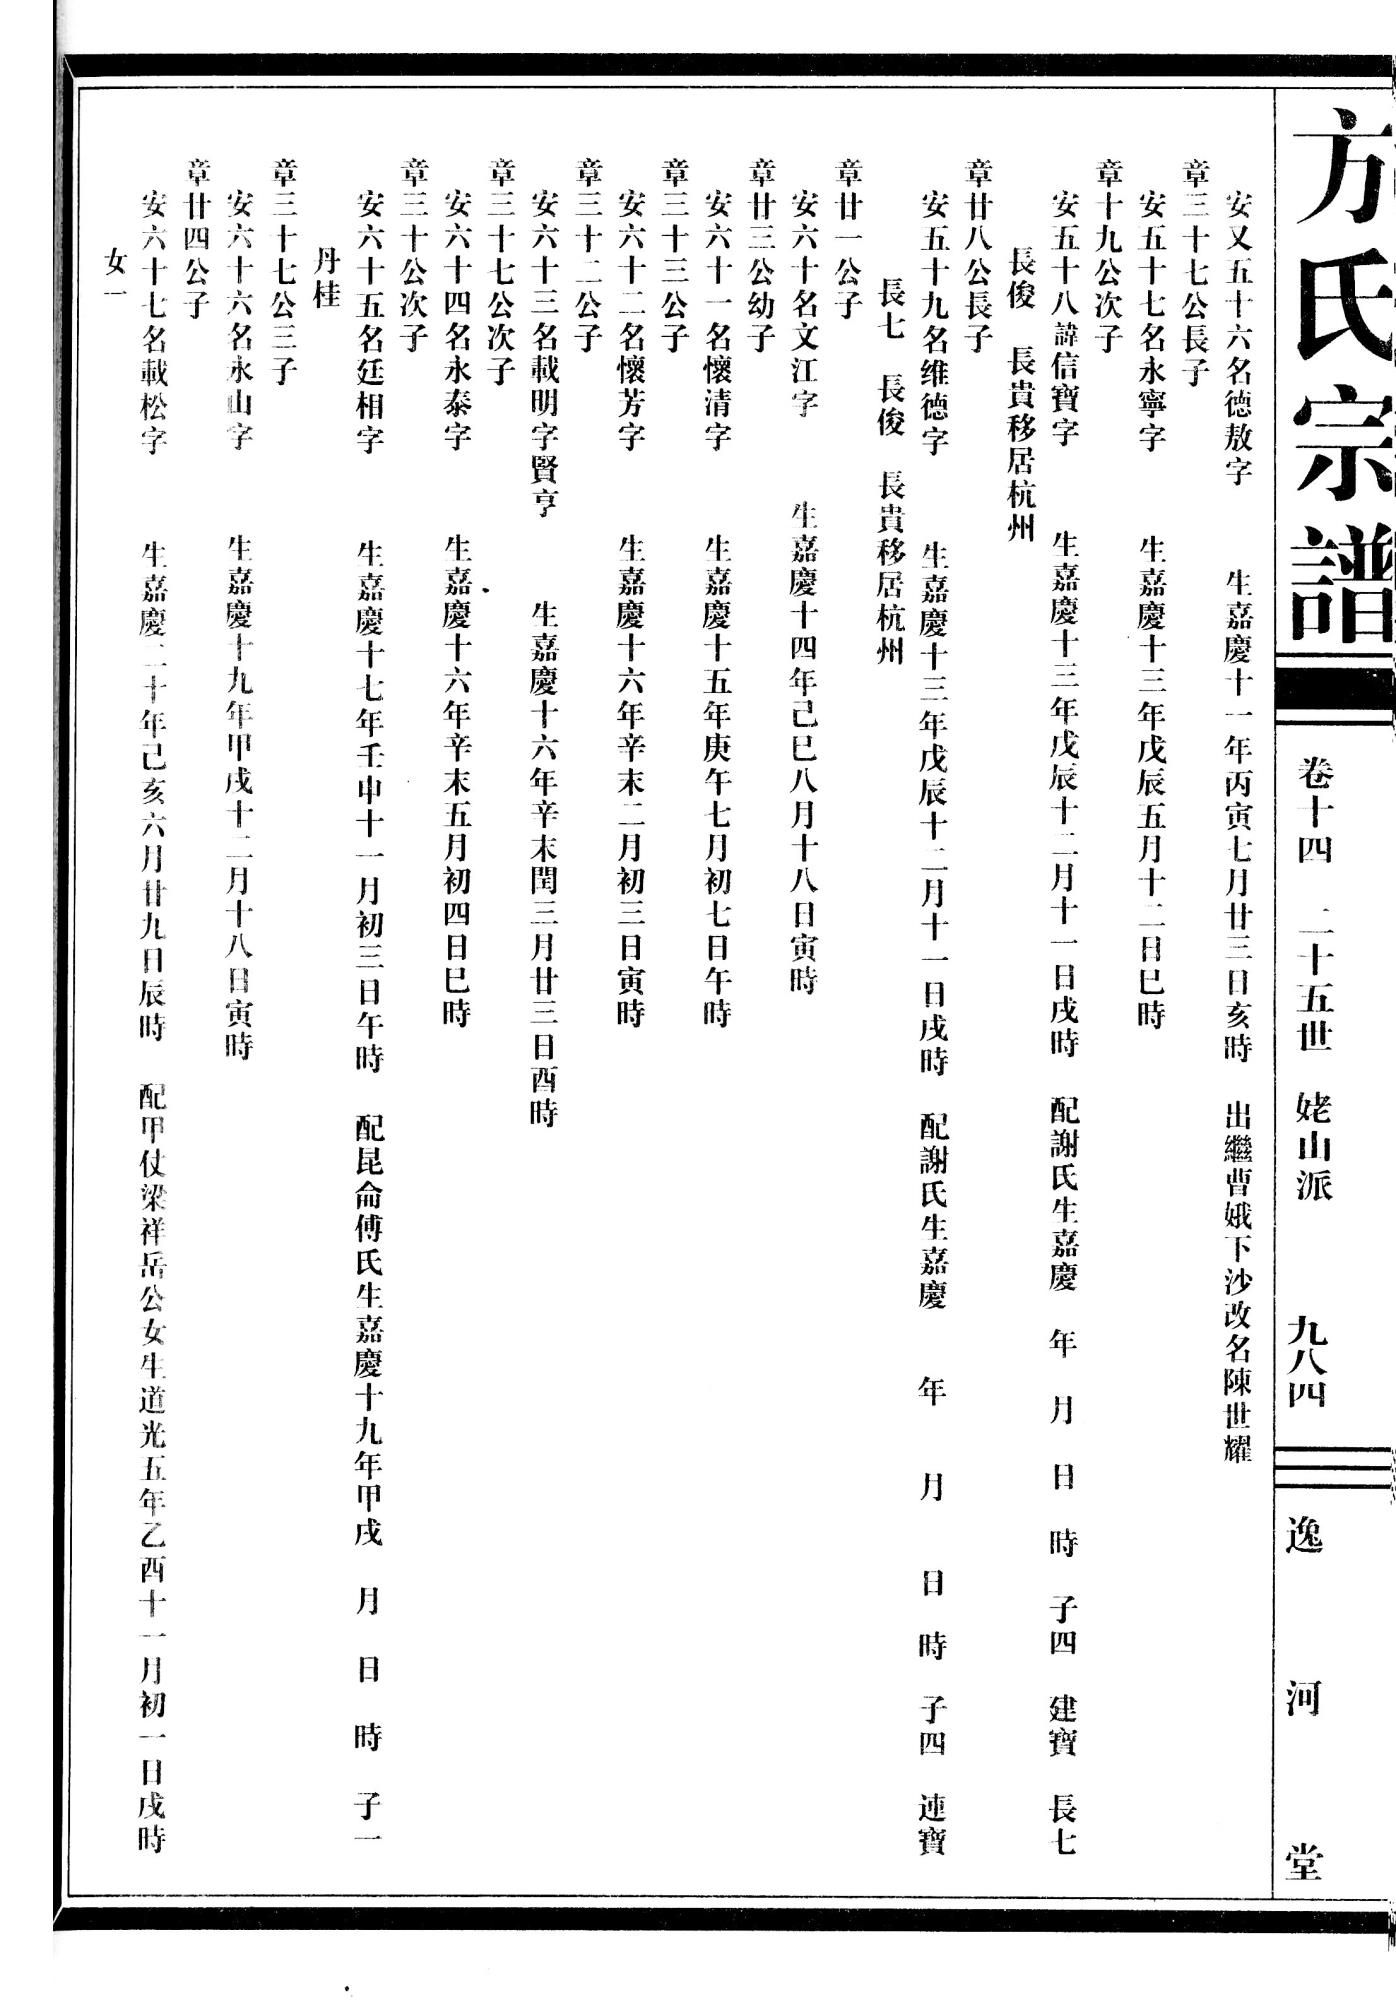 方氏宗譜
卷十四　二十五世　姥山派　九八四
逸河堂
安又五十六名德敖字　生嘉慶十一年丙寅七月廿三日亥時　出繼曹娥下沙改名陳世耀
章三十七公長子
安五十七名永寧字　生嘉慶十三年戊辰五月十二日巳時
章十九公次子
安五十八諱信寶字　生嘉慶十三年戊辰十二月十一日戌時　配謝氏生嘉慶　年　月　日　時　子四　建寶　長七
長俊　長貴移居杭州
章廿八公長子
安五十九名维德字　生嘉慶十三年戊辰十二月十一日戌時　配謝氏生嘉慶　年　月　日　時　子四　連寶
長七　長俊　長貴移居杭州
章廿一公子
安六十名文江字　生嘉慶十四年己巳八月十八日寅時
章廿三公幼子
安六十一名懷清字　生嘉慶十五年庚午七月初七日午時
章三十三公子
安六十二名懷芳字　生嘉慶十六年辛末二月初三日寅時
章三十二公子
安六十三名載明字賢亨　生嘉慶十六年辛末閏三月廿三日酉時
章三十七公次子
安六十四名永泰字　生嘉慶十六年辛末五月初四日巳時
章三十公次子
安六十五名廷相字　生嘉慶十七年壬申十一月初三日午時　配昆侖傅氏生嘉慶十九年甲戌　月　日　時　子一
丹桂
章三十七公三子
安六十六名永山字　生嘉慶十九年甲戌十二月十八日寅時
章廿四公子
安六十七名載松字　生嘉慶二十年己亥六月廿九日辰時　配甲仗梁祥岳公女生道光五年乙酉十一月初一日戌時
女一